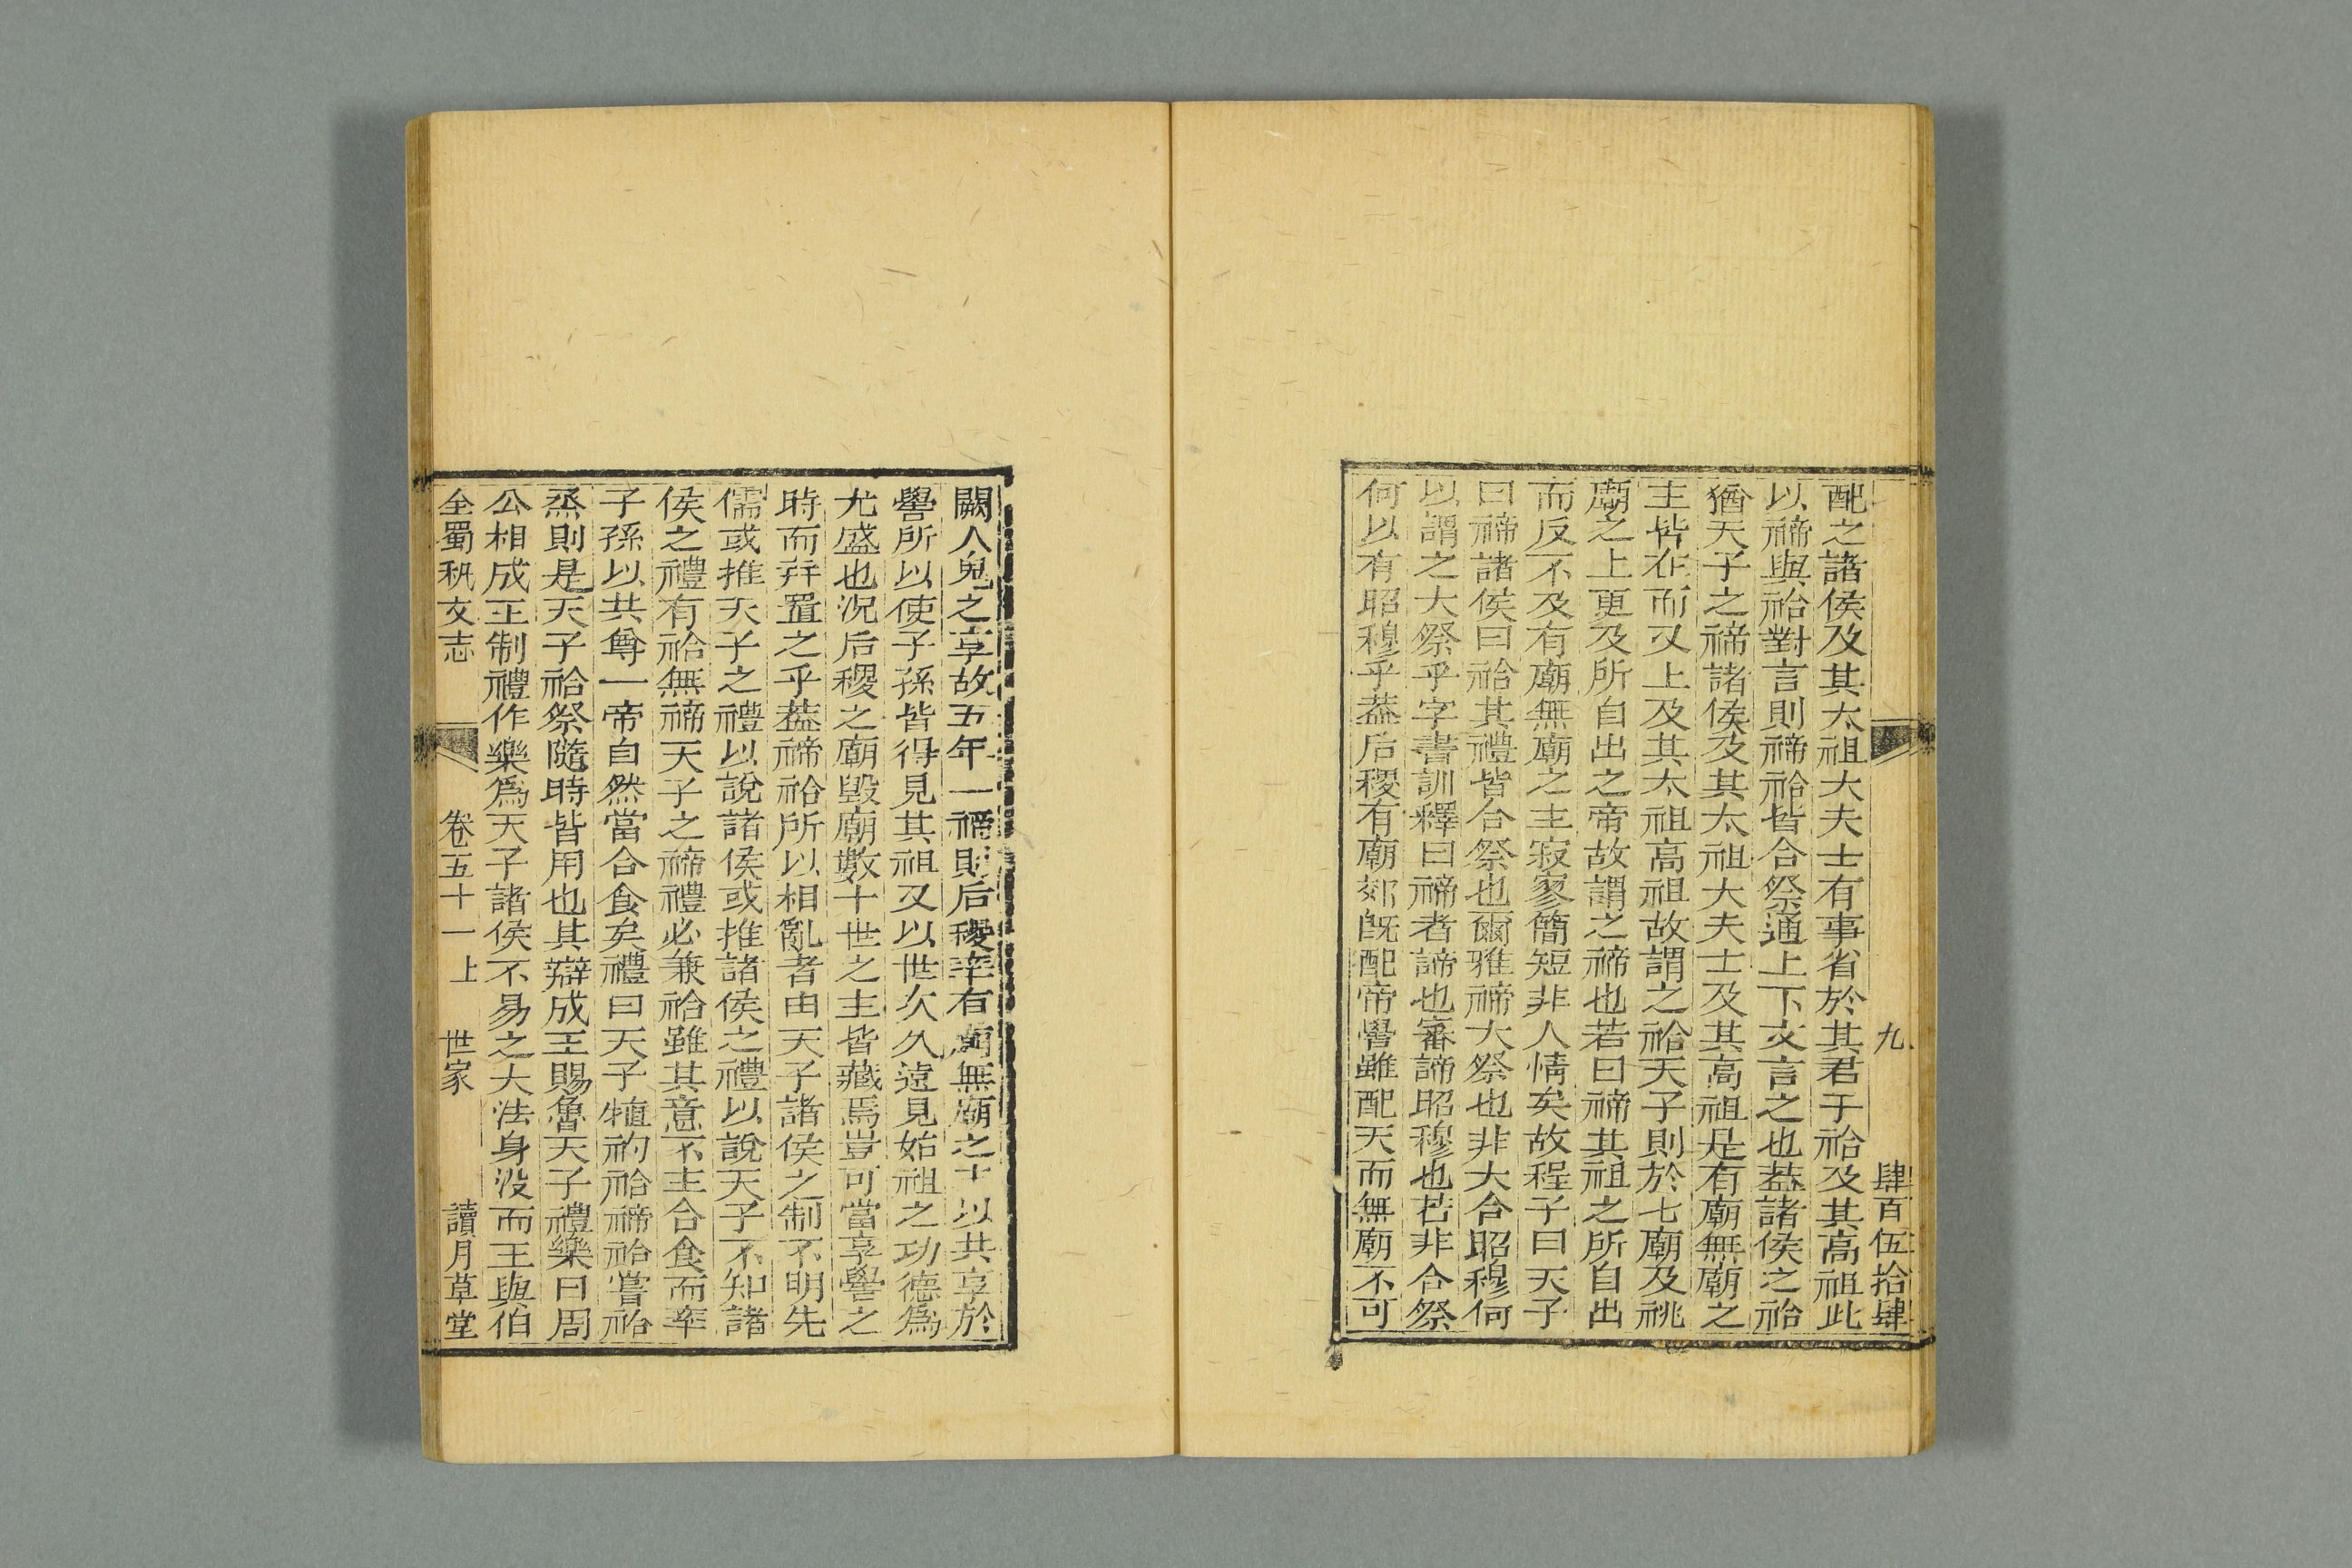 九　肆百伍拾肆
配之諸侯及其太祖大夫士有事省於其君于祫及其高祖此
以禘與祫對言則禘祫皆合祭通上下文言之也葢諸侯之祫
猶天子之禘諸侯及其太祖大夫士及其高祖是有廟無廟之
主皆在而又上及其太祖高祖故謂之祫天子則於七廟及祧
廟之上更及所自出之帝故謂之禘也若曰禘其祖之所自出
而反不及有廟無廟之主寂寥簡短非人情矣故程子曰天子
曰禘諸侯曰祫其禮皆合祭也爾雅禘大祭也非大合昭穆何
以謂之大祭乎字書訓釋曰禘者諦也審諦昭穆也若非合祭
何以有昭穆乎葢后稷有廟郊旣配帝嚳雖配天而無廟不可
闕人鬼之享故五年一禘則后稷率有廟無廟之主以共享於
嚳所以使子孫皆得見其祖又以世次久遠見始祖之功德爲
尤盛也況后稷之廟毀廟數十世之主皆藏焉豈可當享嚳之
時而幷置之乎葢禘祫所以相亂者由天子諸侯之制不明先
儒或推天子之禮以說諸侯或推諸侯之禮以說天子不知諸
侯之禮有祫無禘天子之禘禮必兼祫雖其意不主合食而率
子孫以共尊一帝自然當合食矣禮曰天子犆礿祫禘祫嘗祫
烝則是天子祫祭隨時皆用也其辯成王賜魯天子禮樂曰周
公相成王制禮作樂爲天子諸侯不易之大法身沒而王與伯
全蜀秇文志　卷五十一上　世家　讀月草堂